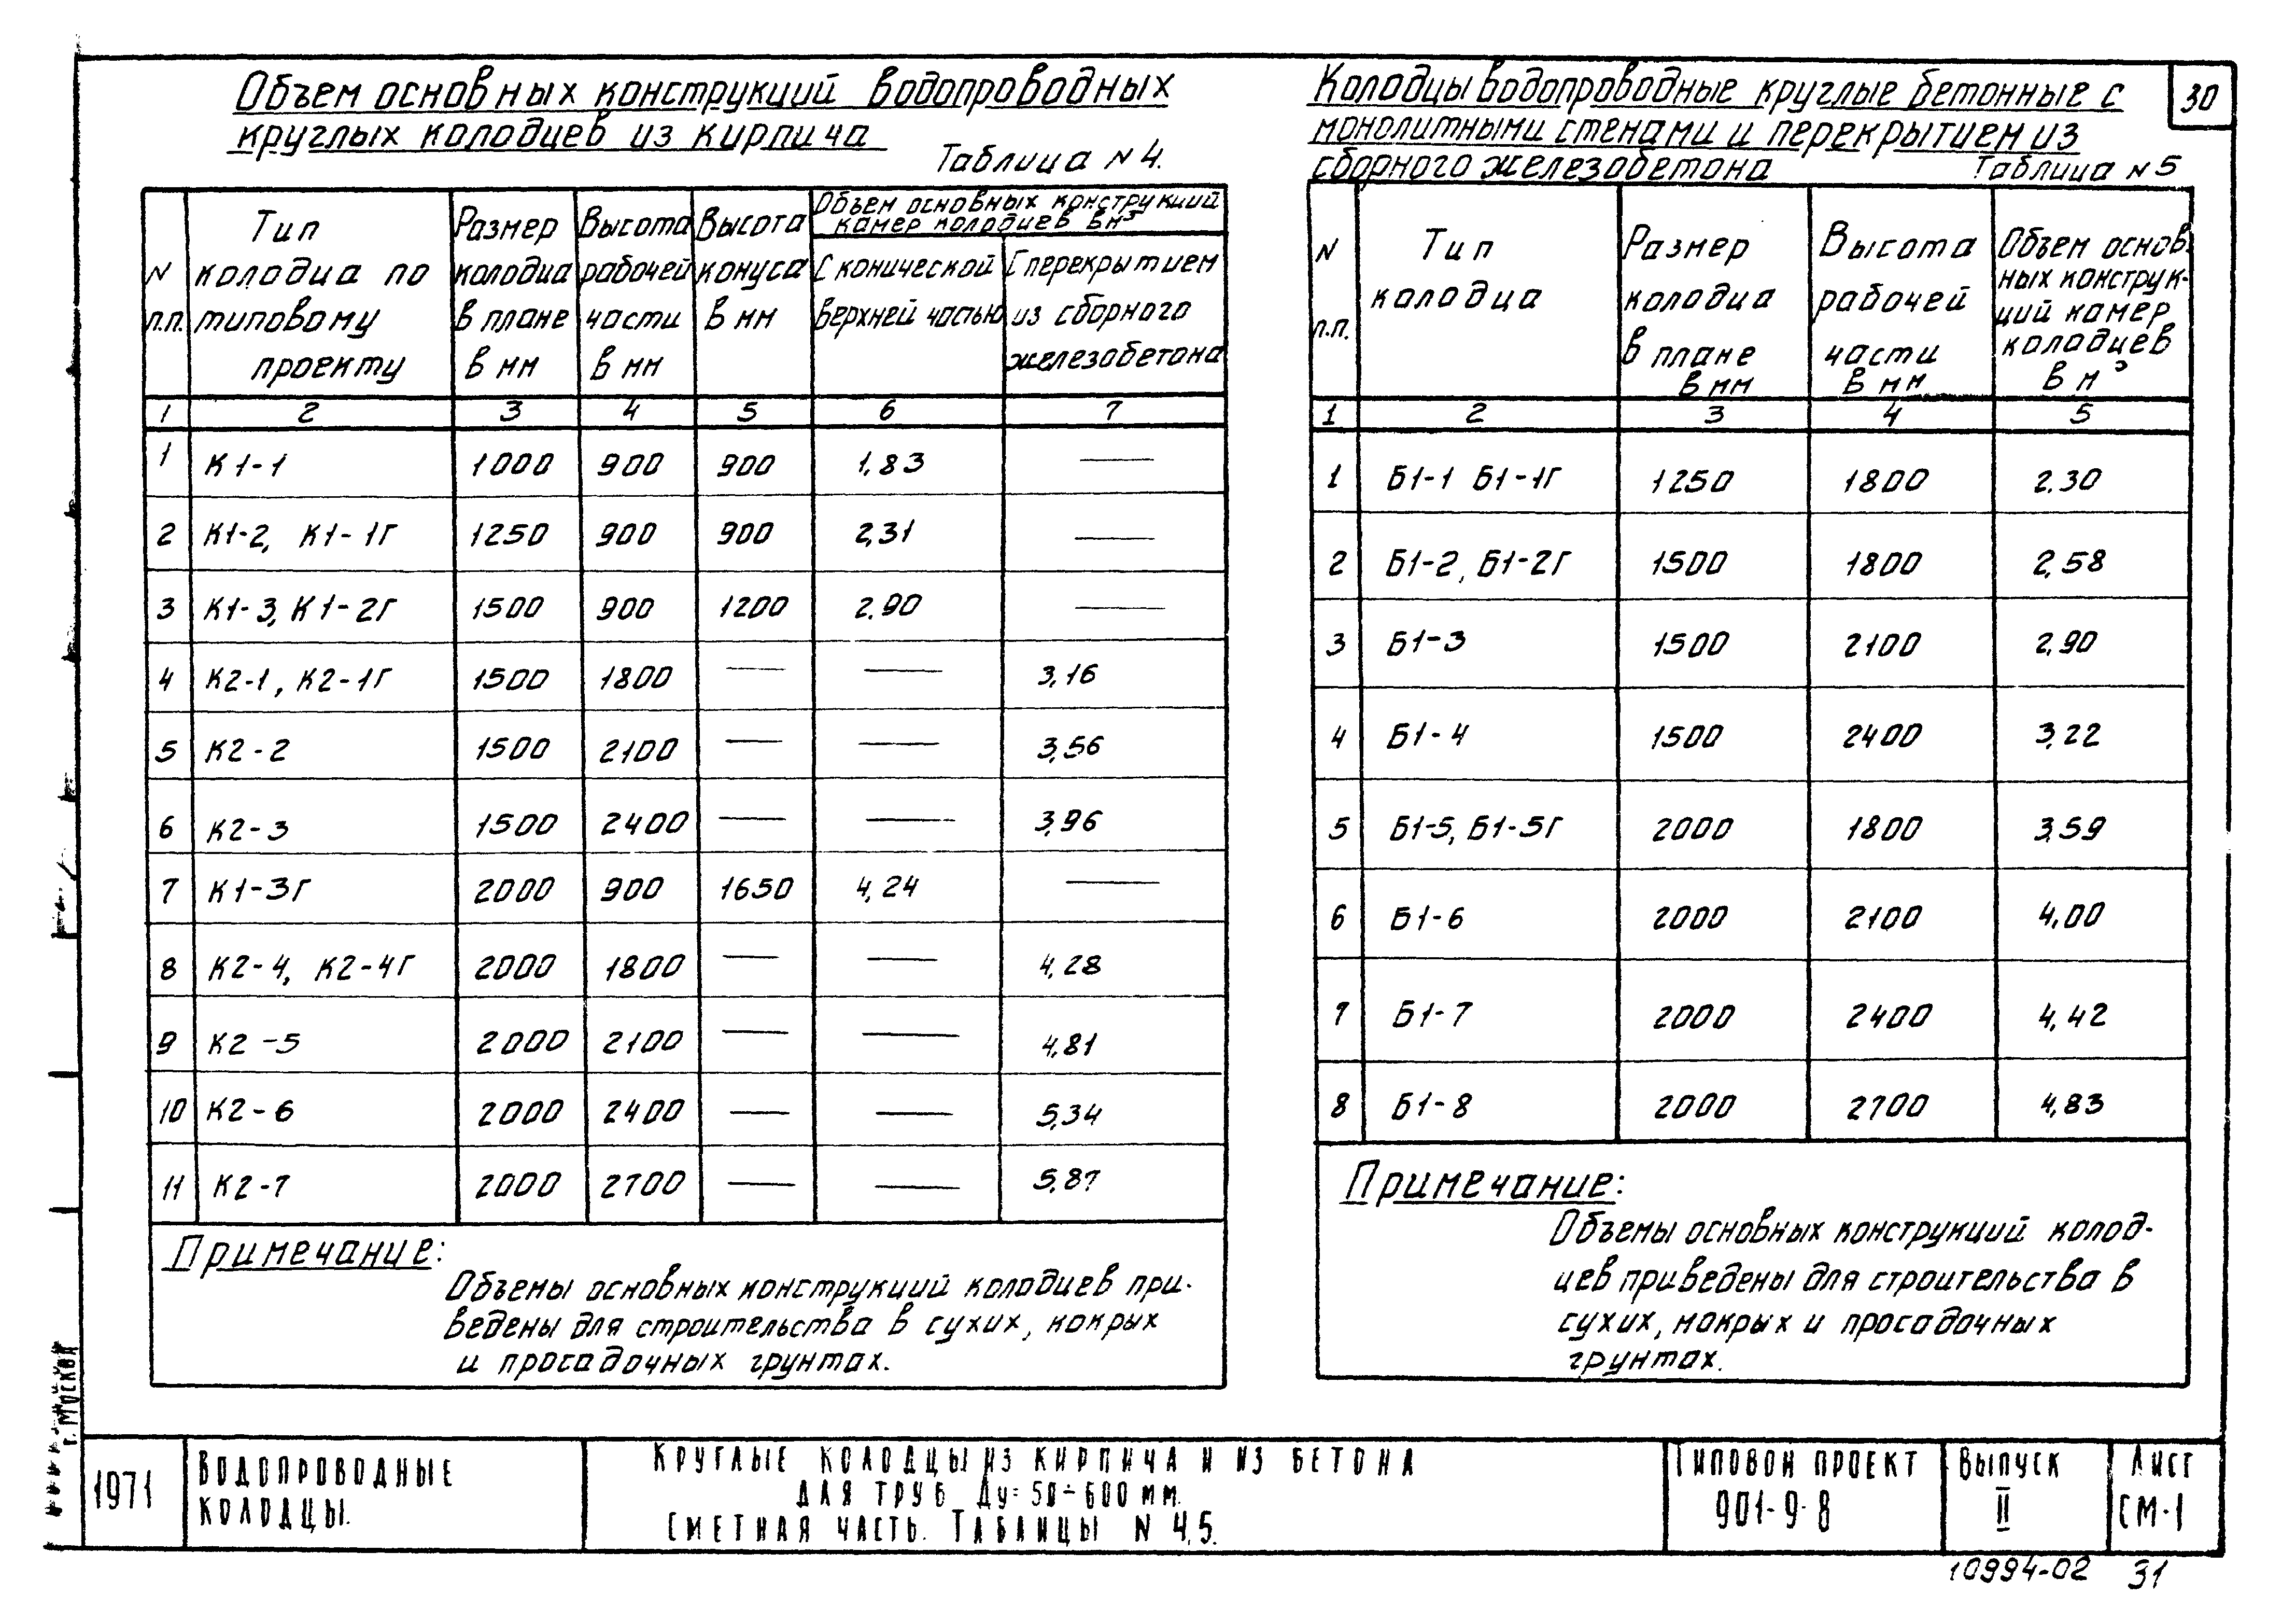 Объем основных конструкций водопроводных
круглых колодцев из кирпича
Таблица N 4.
N п.п. | Тип колодца по типовому проекту | Размер колодца в плане в мм | Высота рабочей части в мм | Высота конуса в мм | Объем основных конструкций камер колодцев в м³
С конической верхней частью | С перекрытием из сборного железобетона
1 2 3 4 5 6 7
1 К1-1 1000 900 900 1,83 —
2 К1-2, К1-1Г 1250 900 900 2,31 —
3 К1-3, К1-2Г 1500 900 1200 2.90 —
4 К2-1, К2-1Г 1500 1800 — — 3,16
5 К2-2 1500 2100 — — 3,56
6 К2-3 1500 2400 — — 3,96
7 К1-3Г 2000 900 1650 4,24 —
8 К2-4, К2-4Г 2000 1800 — — 4,28
9 К2-5 2000 2100 — — 4,81
10 К2-6 2000 2400 — — 5,34
11 К2-7 2000 2700 — — 5,87
Примечание:
Объемы основных конструкций колодцев при-
ведены для строительства в сухих, мокрых
и просадочных грунтах.
Колодцы водопроводные круглые бетонные с
монолитными стенами и перекрытием из
сборного железобетона
Таблица N 5
30
N п.п. | Тип колодца | Размер колодца в плане в мм | Высота рабочей части в мм | Объем основ-ных конструк-ций камер колодцев в м³
1 2 3 4 5
1 Б1-1 Б1-1Г 1250 1800 2.30
2 Б1-2, Б1-2Г 1500 1800 2,58
3 Б1-3 1500 2100 2,90
4 Б1-4 1500 2400 3,22
5 Б1-5, Б1-5Г 2000 1800 3,59
6 Б1-6 2000 2100 4,00
7 Б1-7 2000 2400 4,42
8 Б1-8 2000 2700 4,83
Примечание:
Объемы основных конструкций колод-
цев приведены для строительства в
сухих, мокрых и просадочных
грунтах.
г. Москва
1971
Водопроводные
колодцы.
Круглые колодцы из кирпича и из бетона
для труб Ду=50÷600 мм.
Сметная часть. Таблицы N 4,5.
Типовой проект
901-9-8
Выпуск
II
Лист
СМ-1
10994-02 31